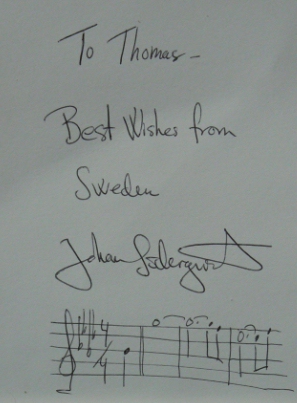 To Thomas -
Best Wishes from
Sweden
Johan
4
4